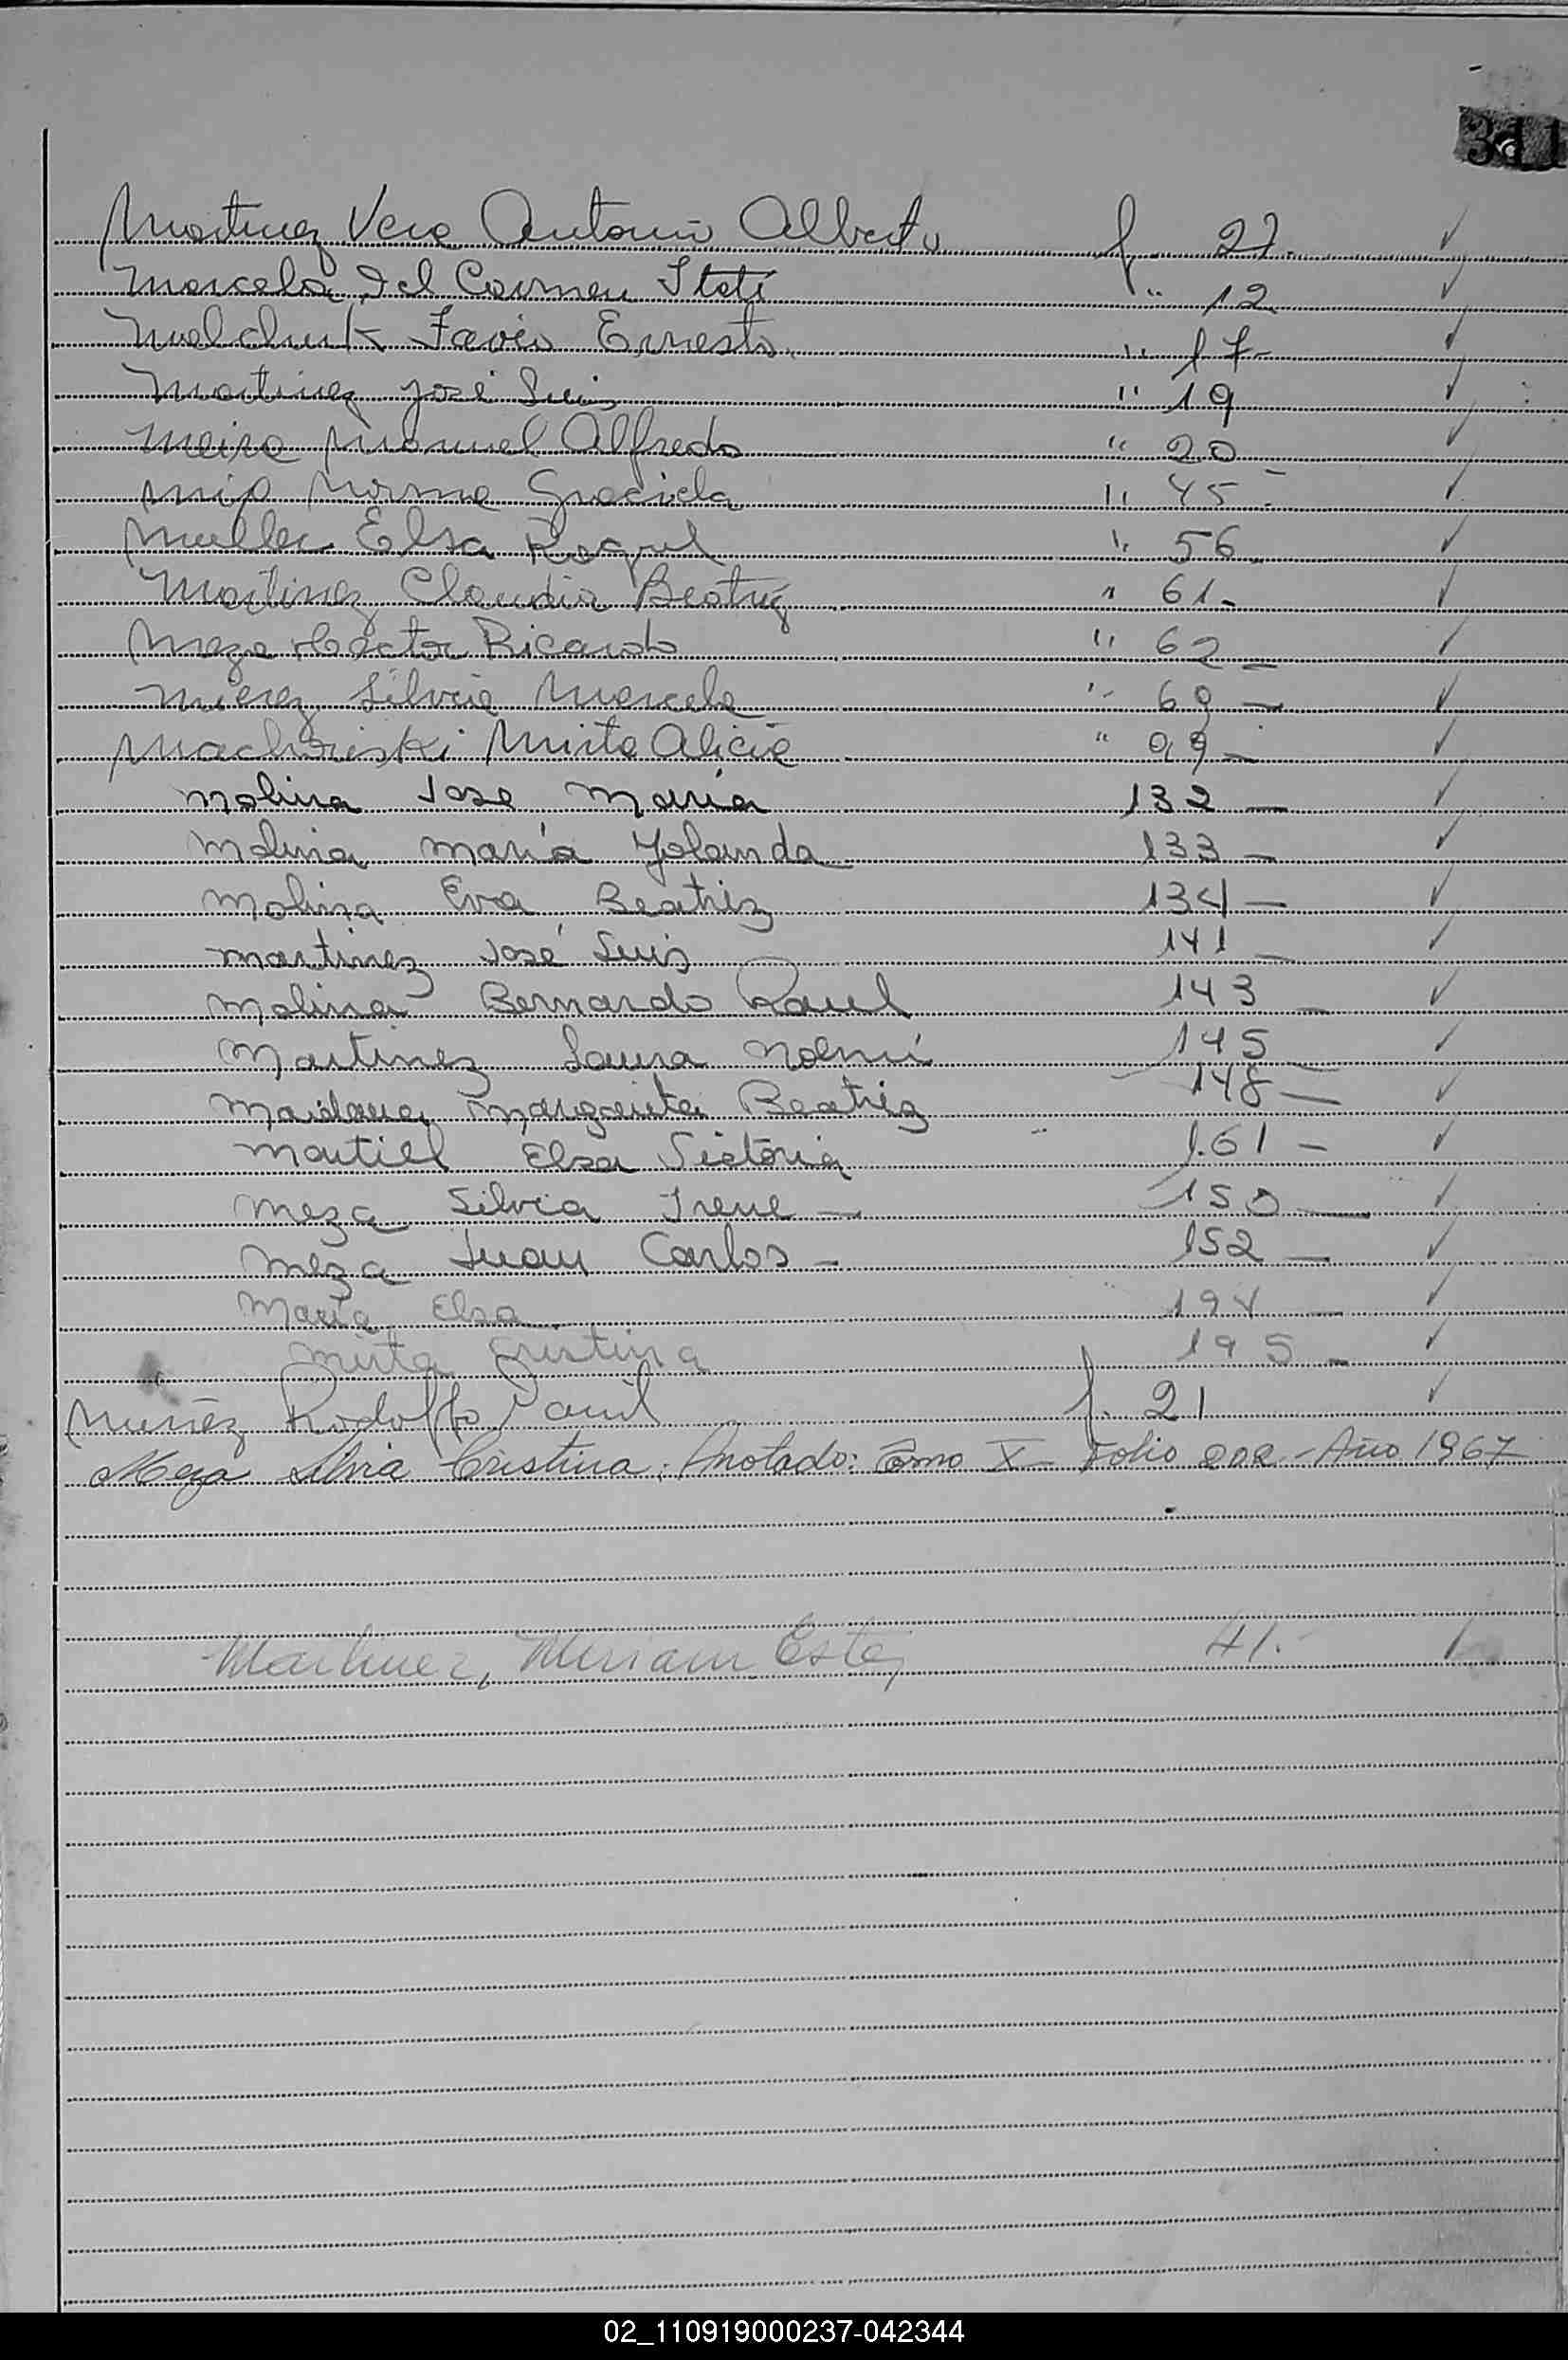 311
Martinez Vera Antonio Alberto f. 27.
Marcela del Carmen Itatí " 12
Melchuk Favio Ernesto. " 17-
Martinez José Luis " 19
Meira Manuel Alfredo " 20
Miño Norma Graciela " 45-
Muller Elsa Raquel " 56
Martinez Claudia Beatriz " 61-
Meza Hector Ricardo " 62-
Mierez Silvia Marcela " 69-
Mirta Alicia " 99-
Molina Jose María 132-
Molina María Yolanda 133-
Molina Eva Beatriz 134-
Martinez José Luis 141-
Molina Bernardo Raul 143-
Martinez Laura Noemí 145
Maidana Margarita Beatriz 148-
Martiel Elsa Victoria 161-
Meza Silvia Irene - 150-
Meza Juan Carlos - 152-
María Elsa 194-
Mirta Cristina 195-
Nuñez Rodolfo Paul f. 21
Meza Silvia Cristina; Anotado: Tomo X- Folio 202.-Año 1967
Martinez, Miriam Este 41.-
02_110919000237-042344